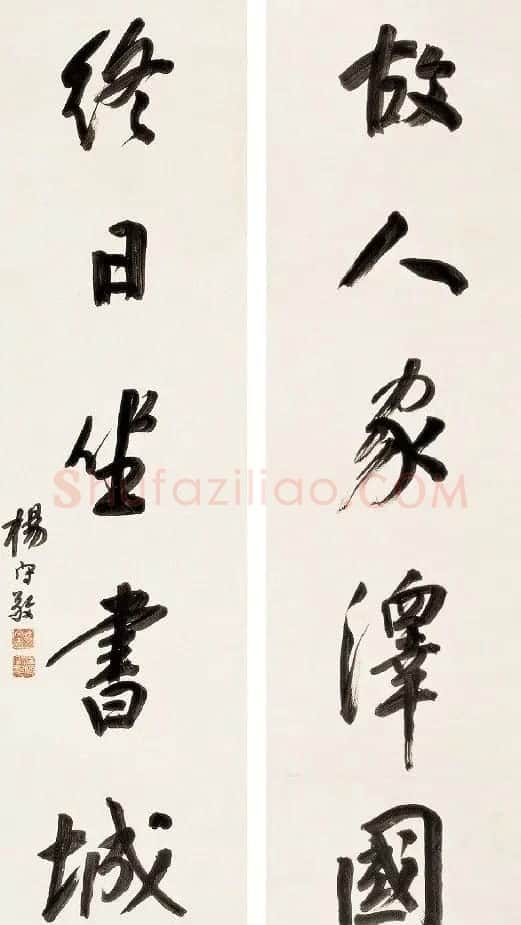 故人家澤國
終日坐書城
楊守敬
Shufaziliao.COM